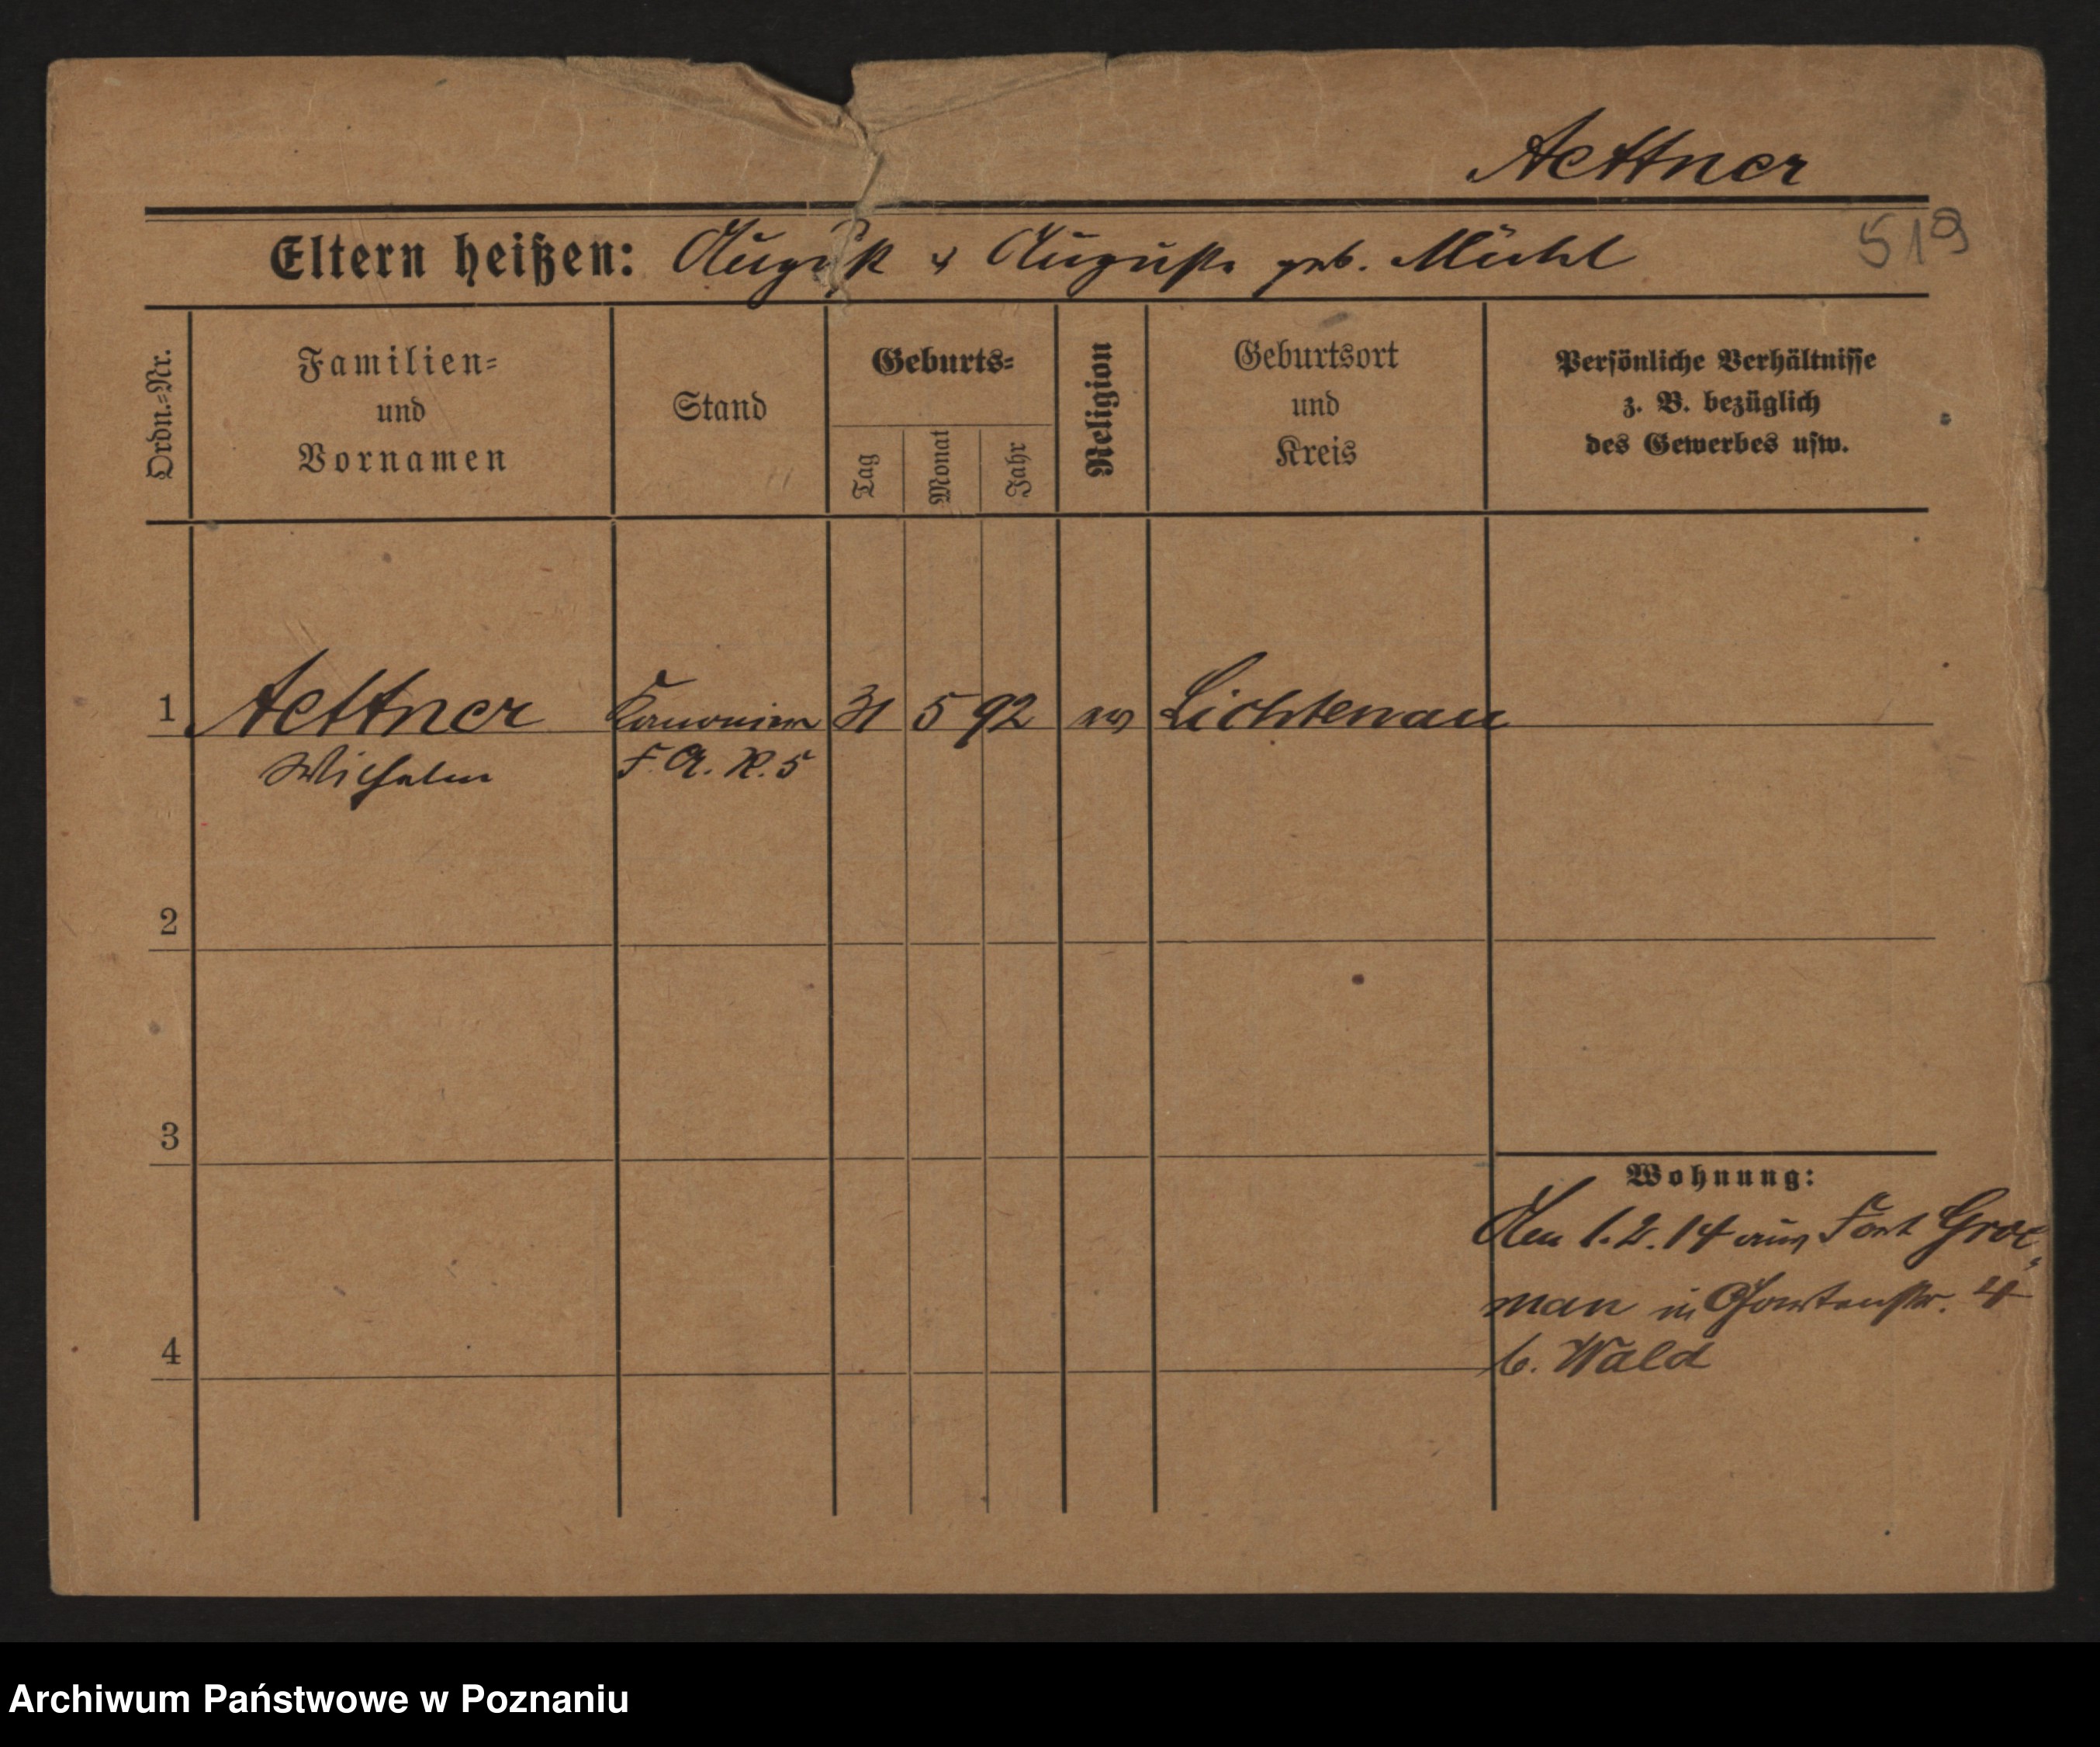 Aettner
Eltern heißen: August & Auguste geb. Mühl
519
Ordn.-Nr.
Familien-
und
Vornamen
Stand
Geburts-
Tag
Monat
Jahr
Religion
Geburtsort
und
Kreis
Persönliche Verhältnisse
z. B. bezüglich
des Gewerbes usw.
1 Aettner Kanonier 31 5 92 ev Lichtenau
Wilhelm F. A. R. 5
2
3
Wohnung:
1. 2. 14 aus Fort Grol-
man in Gartenstr. 4
4
b. Wald
Archiwum Państwowe w Poznaniu